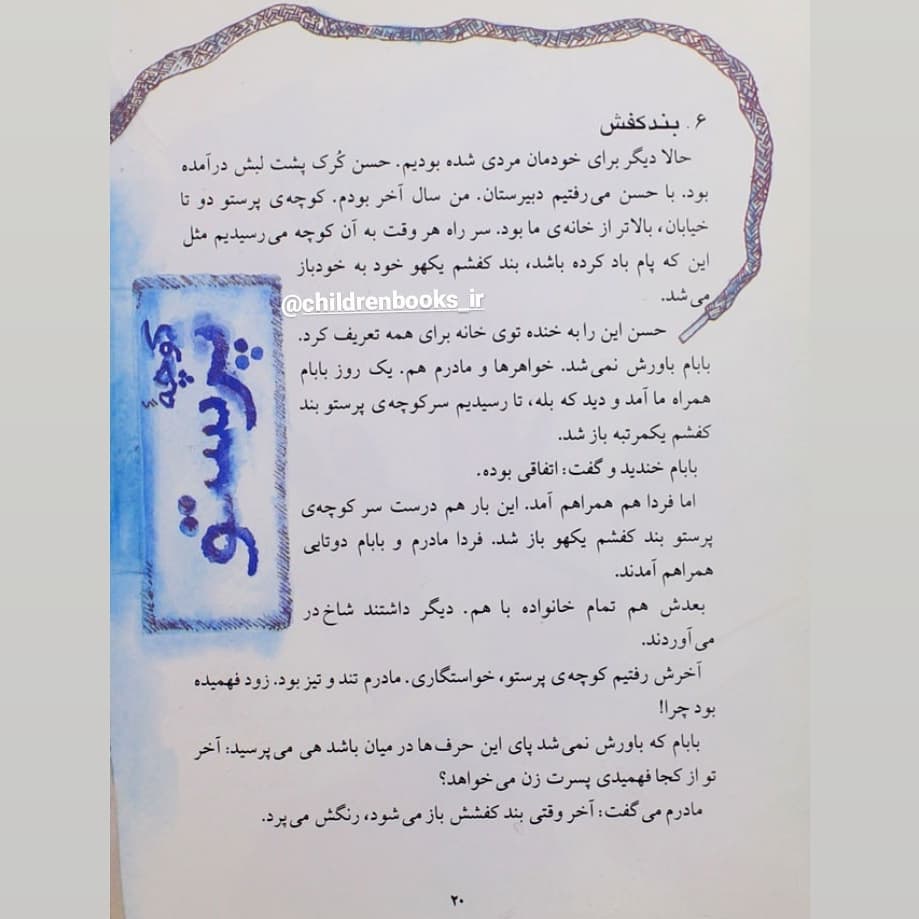 ۶. بندکفش
حالا دیگر برای خودمان مردی شده بودیم. حسن کُرک پشت لبش درآمده
بود. با حسن می‌رفتیم دبیرستان. من سال آخر بودم. کوچه‌ی پرستو دو تا
خیابان، بالاتر از خانه‌ی ما بود. سر راه هر وقت به آن کوچه می‌رسیدیم مثل
این که پام باد کرده باشد، بند کفشم یکهو خود به خودباز
می‌شد.
@childrenbooks_ir
حسن این را به خنده توی خانه برای همه تعریف کرد.
بابام باورش نمی‌شد. خواهرها و مادرم هم. یک روز بابام
همراه ما آمد و دید که بله، تا رسیدیم سرکوچه‌ی پرستو بند
کفشم یکمرتبه باز شد.
بابام خندید و گفت: اتفاقی بوده.
اما فردا هم همراهم آمد. این بار هم درست سر کوچه‌ی
پرستو بند کفشم یکهو باز شد. فردا مادرم و بابام دوتایی
همراهم آمدند.
بعدش هم تمام خانواده با هم. دیگر داشتند شاخ در
می‌آوردند.
کوچه
پرستو
آخرش رفتیم کوچه‌ی پرستو، خواستگاری. مادرم تند و تیز بود. زود فهمیده
بود چرا!
بابام که باورش نمی‌شد پای این حرف‌ها در میان باشد هی می‌پرسید: آخر
تو از کجا فهمیدی پسرت زن می‌خواهد؟
مادرم می‌گفت: آخر وقتی بند کفشش باز می‌شود، رنگش می‌پرد.
۲۰